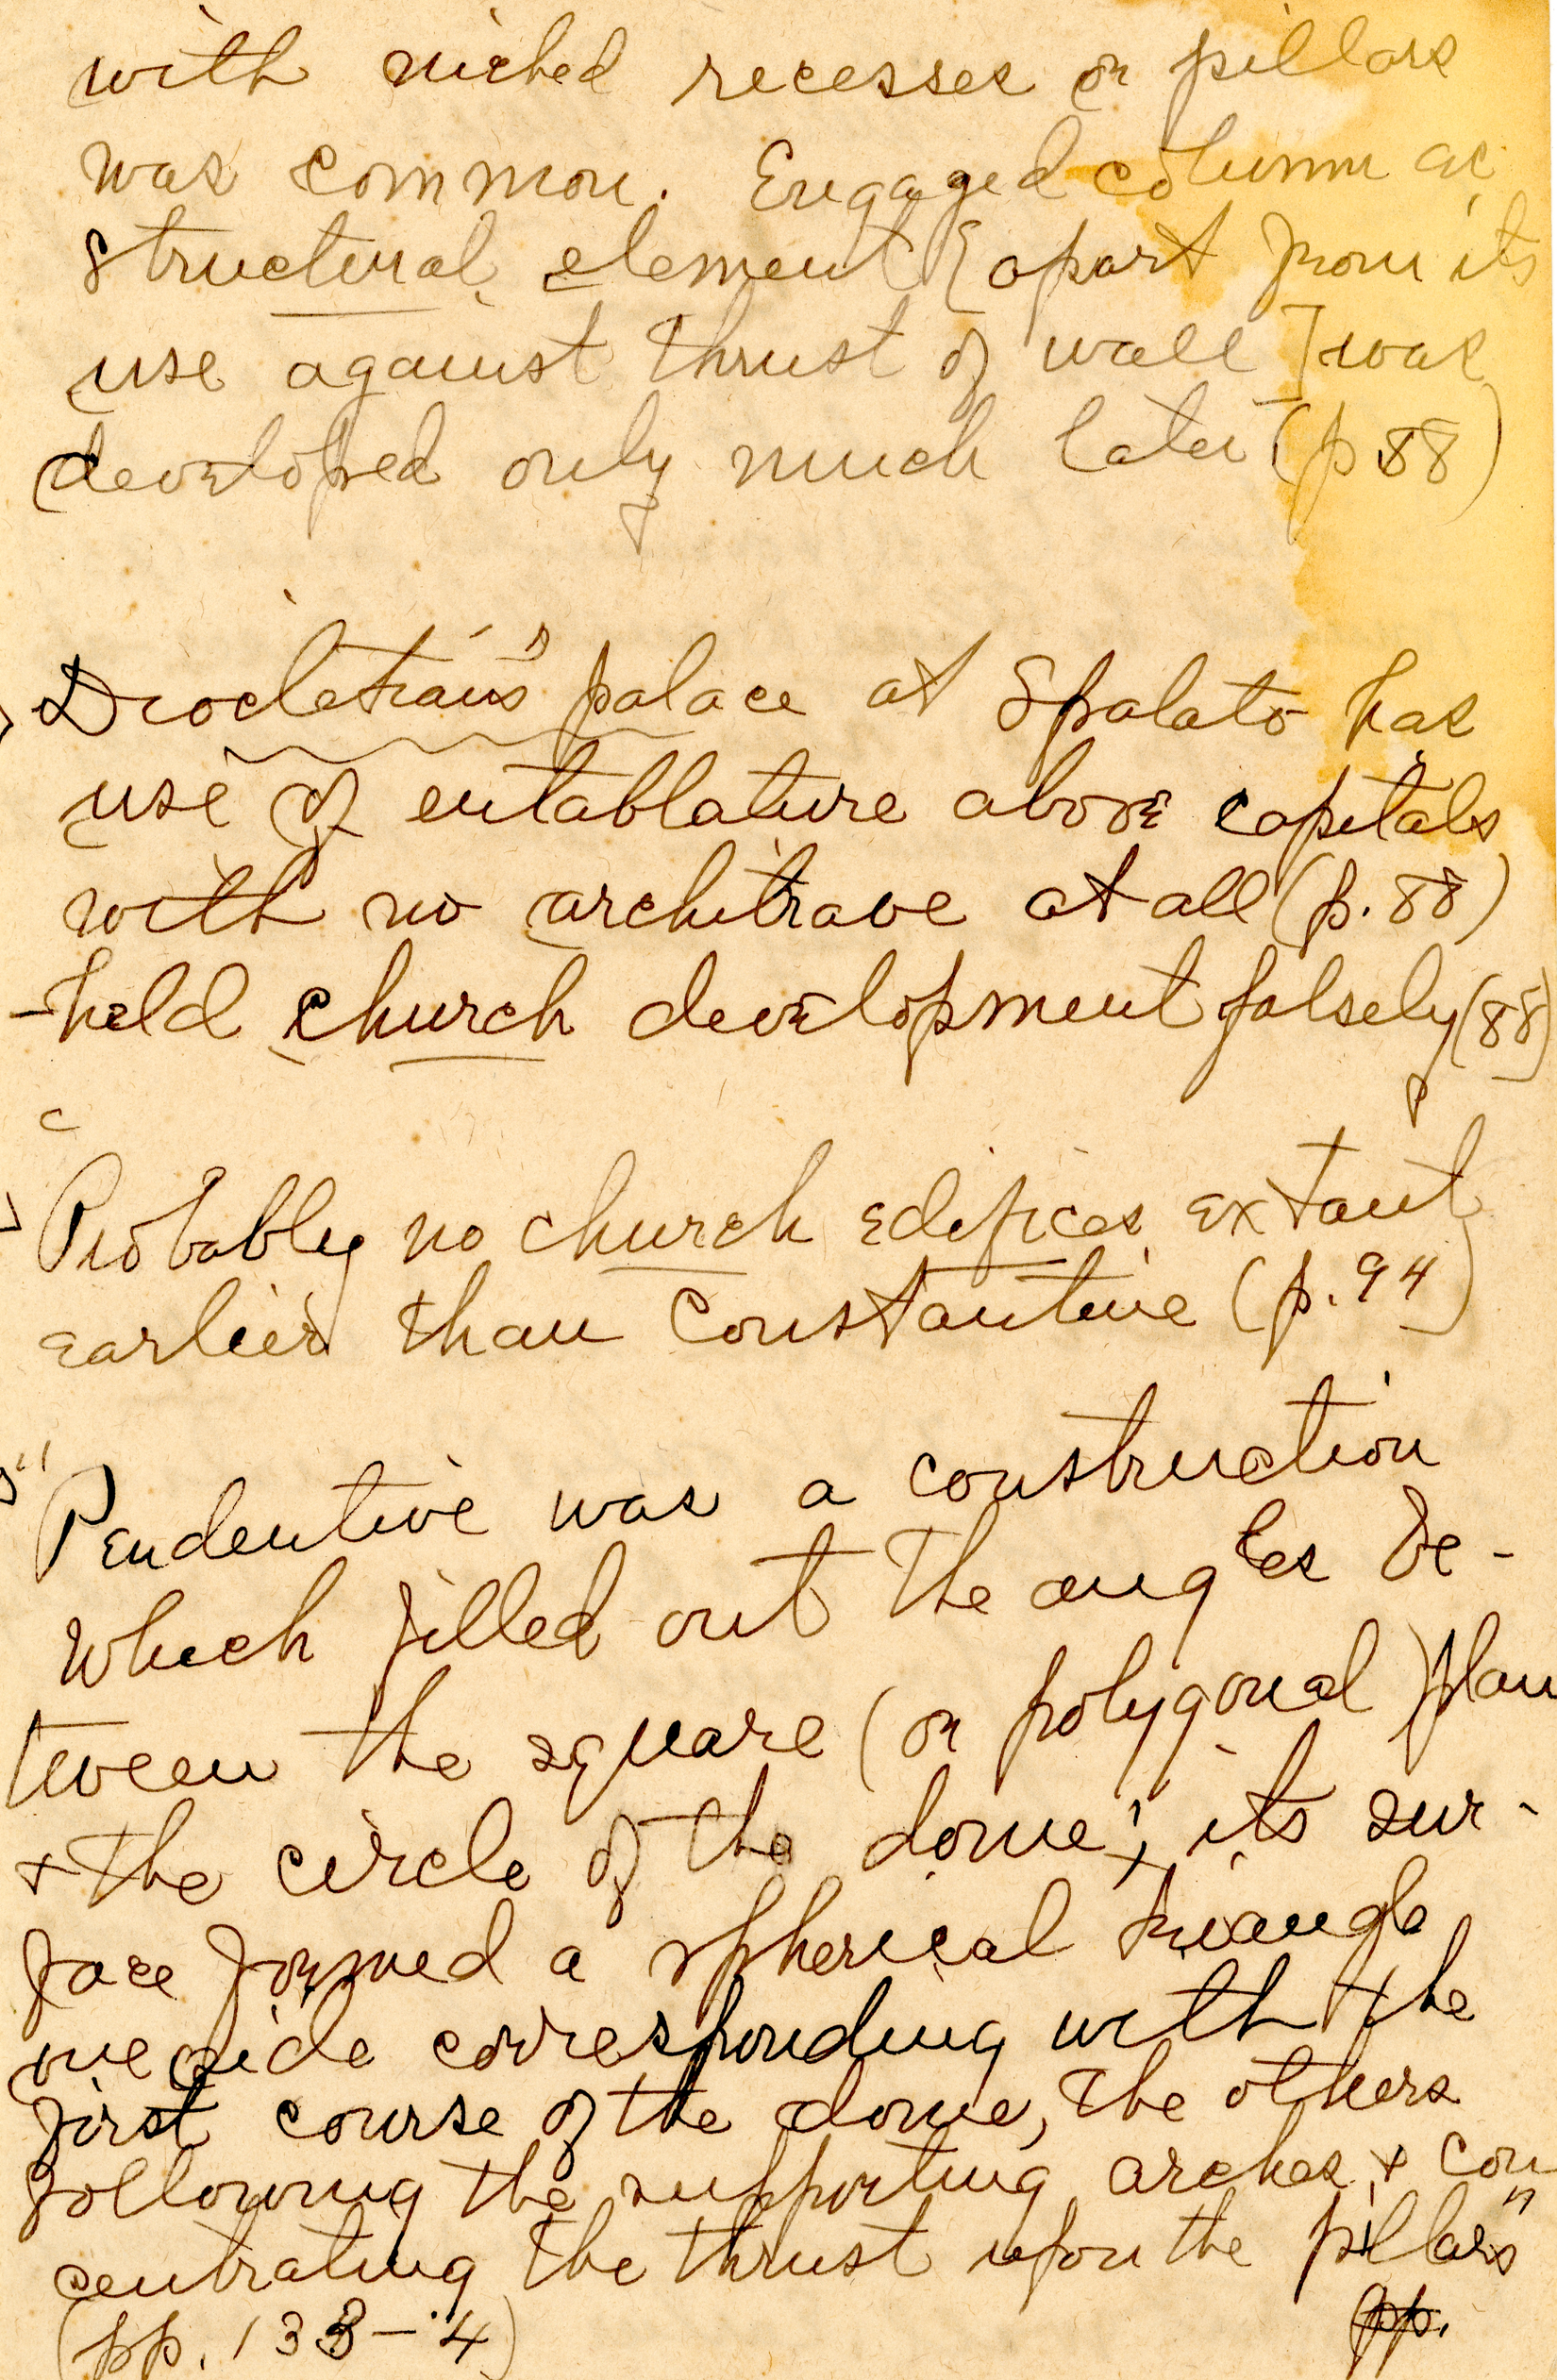 with niched recesses or pillars
was common. Engaged column as
structural element [apart from its
use against thrust of wall] was
developed only much later (p 88)
Diocletian's palace at Spalato has
use of entablature above capitals
with no architrave at all (p. 88)
- held church development falsely (88)
Probably no church edifices extant
earlier than Constantine (p. 94)
"Pendentive was a construction
which filled out the angles be-
tween the square (or polygonal) plan
& the circle of the dome; its sur-
face formed a spherical triangle
one side corresponding with the
first course of the dome, the others
following the supporting arches & con
centrating the thrust upon the pillars"
(pp. 133-4) pp.